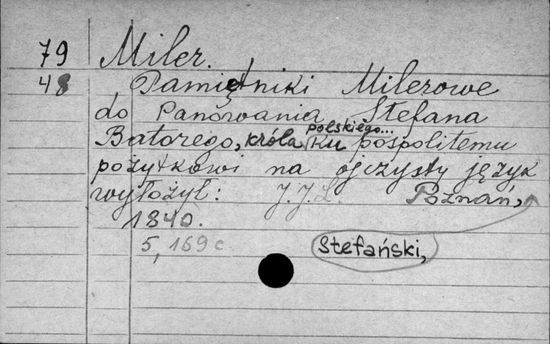 79 Miler.
48 Pamiętniki Milerowe
do Panowania Stefana
Batorego, króla polskiego... Ku pospolitemu
pożytkowi na ojczysty język
wyłożył: J. J. L. Poznań,
1840.
5, 169 c. Stefański,